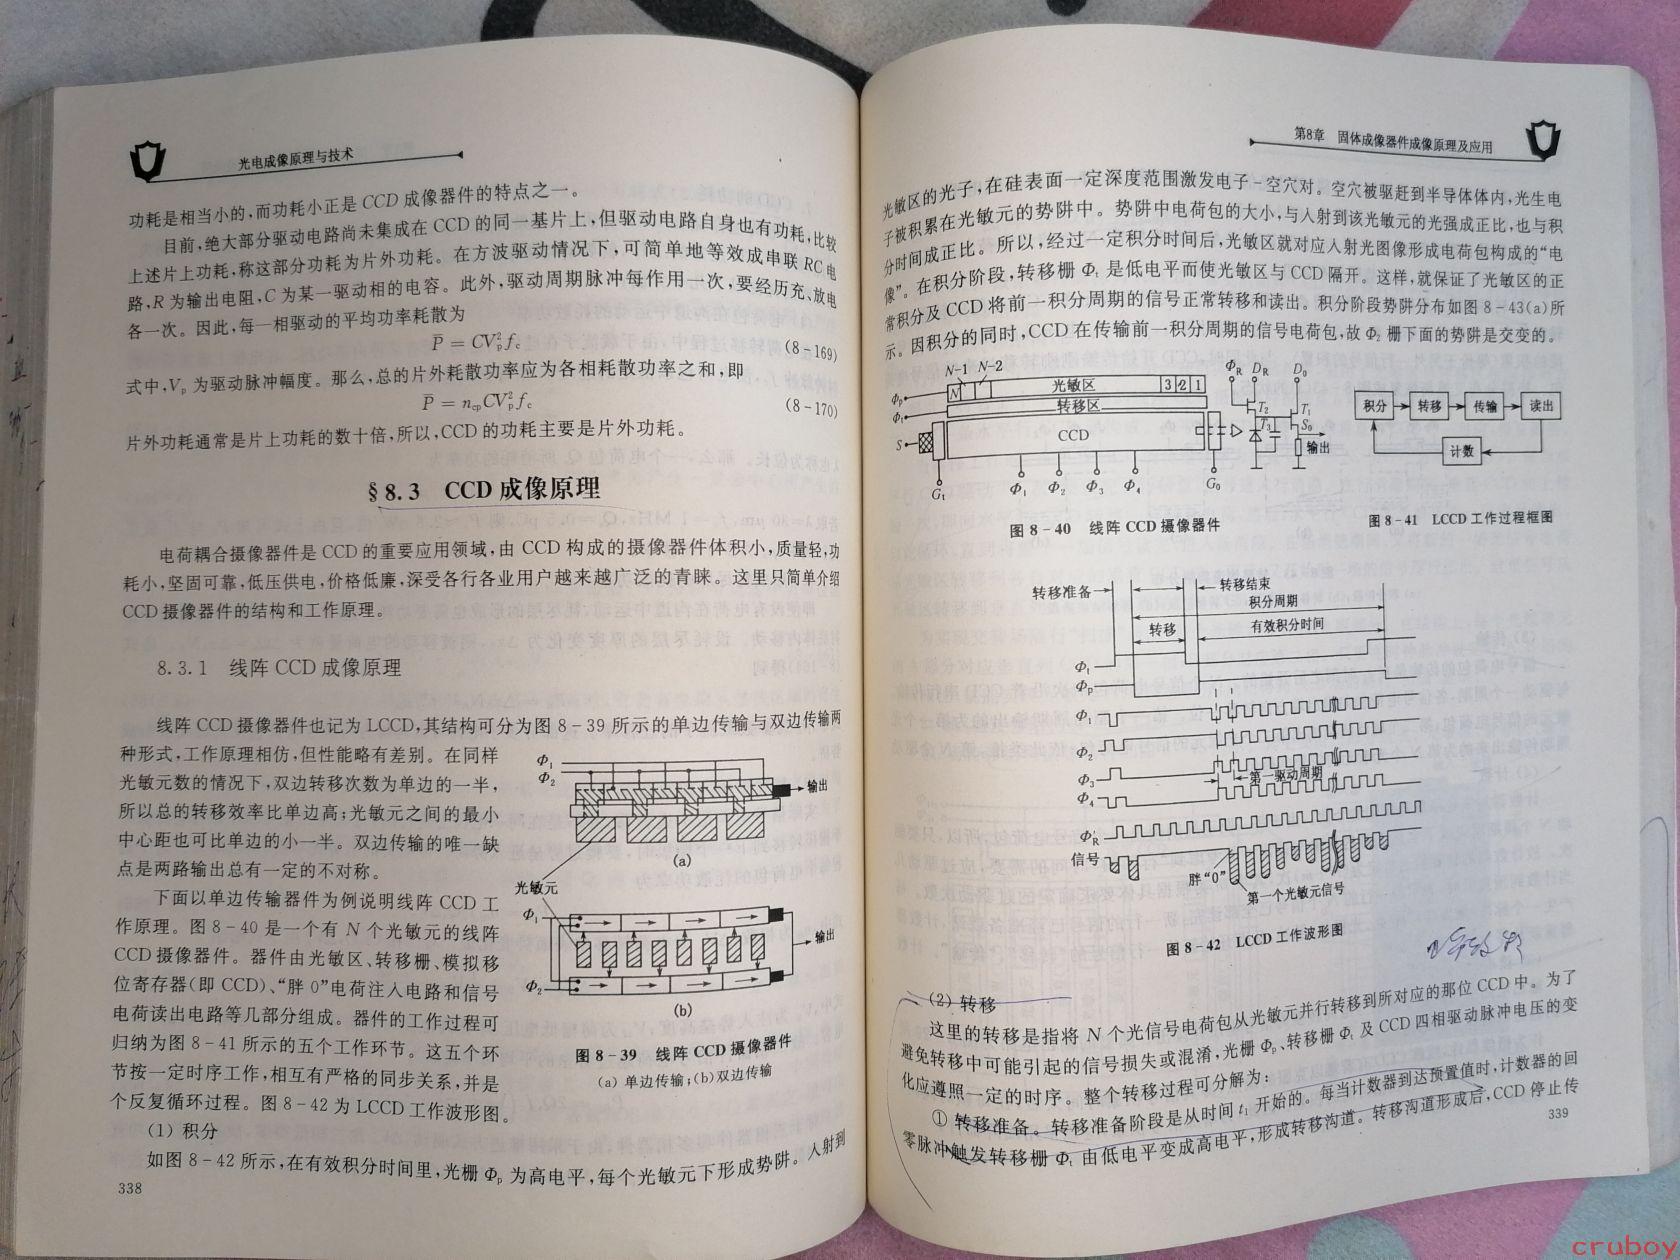 光电成像原理与技术
功耗是相当小的,而功耗小正是CCD成像器件的特点之一。
目前,绝大部分驱动电路尚未集成在CCD的同一基片上,但驱动电路自身也有功耗,比较
上述片上功耗,称这部分功耗为片外功耗。在方波驱动情况下,可简单地等效成串联RC电
路,R为输出电阻,C为某一驱动相的电容。此外,驱动周期脉冲每作用一次,要经历充、放电
各一次。因此,每一相驱动的平均功率耗散为
P̄ = CV²ₚf꜀ (8-169)
式中,Vₚ为驱动脉冲幅度。那么,总的片外耗散功率应为各相耗散功率之和,即
P̄ = n_cp CV²ₚf_c (8-170)
片外功耗通常是片上功耗的数十倍,所以,CCD的功耗主要是片外功耗。
§8.3 CCD成像原理
电荷耦合摄像器件是CCD的重要应用领域,由CCD构成的摄像器件体积小,质量轻,功
耗小,坚固可靠,低压供电,价格低廉,深受各行各业用户越来越广泛的青睐。这里只简单介绍
CCD摄像器件的结构和工作原理。
8.3.1 线阵CCD成像原理
线阵CCD摄像器件也记为LCCD,其结构可分为图8-39所示的单边传输与双边传输两
种形式,工作原理相仿,但性能略有差别。在同样
光敏元数的情况下,双边转移次数为单边的一半,
所以总的转移效率比单边高;光敏元之间的最小
中心距也可比单边的小一半。双边传输的唯一缺
点是两路输出总有一定的不对称。
下面以单边传输器件为例说明线阵CCD工
作原理。图8-40是一个有N个光敏元的线阵
CCD摄像器件。器件由光敏区、转移栅、模拟移
位寄存器(即CCD)、“胖0”电荷注入电路和信号
电荷读出电路等几部分组成。器件的工作过程可
归纳为图8-41所示的五个工作环节。这五个环
节按一定时序工作,相互有严格的同步关系,并是
个反复循环过程。图8-42为LCCD工作波形图。
Φ₁
Φ₂
输出
(a)
光敏元
Φ₁
输出
Φ₂
(b)
图8-39 线阵CCD摄像器件
(a)单边传输;(b)双边传输
(1)积分
如图8-42所示,在有效积分时间里,光栅Φₚ为高电平,每个光敏元下形成势阱。入射到
338
第8章 固体成像器件成像原理及应用
光敏区的光子,在硅表面一定深度范围激发电子-空穴对。空穴被驱赶到半导体体内,光生电
子被积累在光敏元的势阱中。势阱中电荷包的大小,与入射到该光敏元的光强成正比,也与积
分时间成正比。所以,经过一定积分时间后,光敏区就对应入射光图像形成电荷包构成的“电
像”。在积分阶段,转移栅Φₜ是低电平而使光敏区与CCD隔开。这样,就保证了光敏区的正
常积分及CCD将前一积分周期的信号正常转移和读出。积分阶段势阱分布如图8-43(a)所
示。因积分的同时,CCD在传输前一积分周期的信号电荷包,故Φ₂栅下面的势阱是交变的。
N-1 N-2 Φ_R D_R D₀
Φₚ N 光敏区 3 2 1
Φₜ 转移区 T₂ T₁
S CCD T₃ S₀ 输出
Gₜ Φ₁ Φ₂ Φ₃ Φ₄ G₀
图8-40 线阵CCD摄像器件
积分 转移 传输 读出
计数
图8-41 LCCD工作过程框图
转移准备 转移结束
积分周期
转移 有效积分时间
Φₜ
Φₚ
Φ₁
Φ₂
Φ₃ 第一驱动周期
Φ₄
Φ′_R
信号
胖“0”
第一个光敏元信号
图8-42 LCCD工作波形图
(2)转移
这里的转移是指将N个光信号电荷包从光敏元并行转移到所对应的那位CCD中。为了
避免转移中可能引起的信号损失或混淆,光栅Φₚ、转移栅Φₜ及CCD四相驱动脉冲电压的变
化应遵照一定的时序。整个转移过程可分解为:
①转移准备。转移准备阶段是从时间t₁开始的。每当计数器到达预置值时,计数器的回
零脉冲触发转移栅Φₜ由低电平变成高电平,形成转移沟道。转移沟道形成后,CCD停止传
339
cruboy